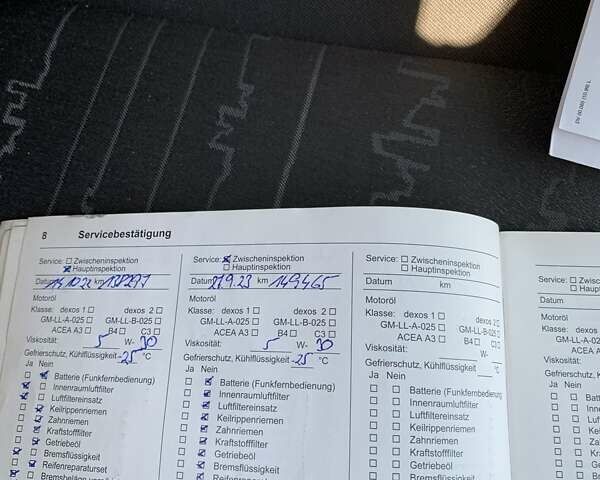 8 Servicebestätigung
Service: Zwischeninspektion
Hauptinspektion
Datum km
Motoröl
Klasse: dexos 1 dexos 2
GM-LL-A-025 GM-LL-B-025
ACEA A3 B4 C3
Viskosität: 5 W- 30
Gefrierschutz, Kühlflüssigkeit -25 °C
Ja Nein
Batterie (Funkfernbedienung)
Innenraumluftfilter
Luftfiltereinsatz
Keilrippenriemen
Zahnriemen
Kraftstofffilter
Getriebeöl
Bremsflüssigkeit
Reifenreparaturset
Service: Zwischeninspektion
Hauptinspektion
Datum 27.9.23 km 149465
Motoröl
Klasse: dexos 1 dexos 2
GM-LL-A-025 GM-LL-B-025
ACEA A3 B4 C3
Viskosität: 5 W- 30
Gefrierschutz, Kühlflüssigkeit -25 °C
Ja Nein
Batterie (Funkfernbedienung)
Innenraumluftfilter
Luftfiltereinsatz
Keilrippenriemen
Zahnriemen
Kraftstofffilter
Getriebeöl
Bremsflüssigkeit
Reifenreparaturset
Service: Zwischeninspektion
Hauptinspektion
Datum km
Motoröl
Klasse: dexos 1 dexos 2
GM-LL-A-025 GM-LL-B-025
ACEA A3 B4 C3
Viskosität: W-
Gefrierschutz, Kühlflüssigkeit °C
Ja Nein
Batterie (Funkfernbedienung)
Innenraumluftfilter
Luftfiltereinsatz
Keilrippenriemen
Zahnriemen
Kraftstofffilter
Getriebeöl
Bremsflüssigkeit
Service: Zwischen
Hauptins
Datum
Motoröl
Klasse: dexos 1
GM-LL-A-025
ACEA A3
Viskosität:
Gefrierschutz, Kühlflü
Ja Nein
Batt
Inne
Luft
Keil
Zahn
Kra
Get
Bre